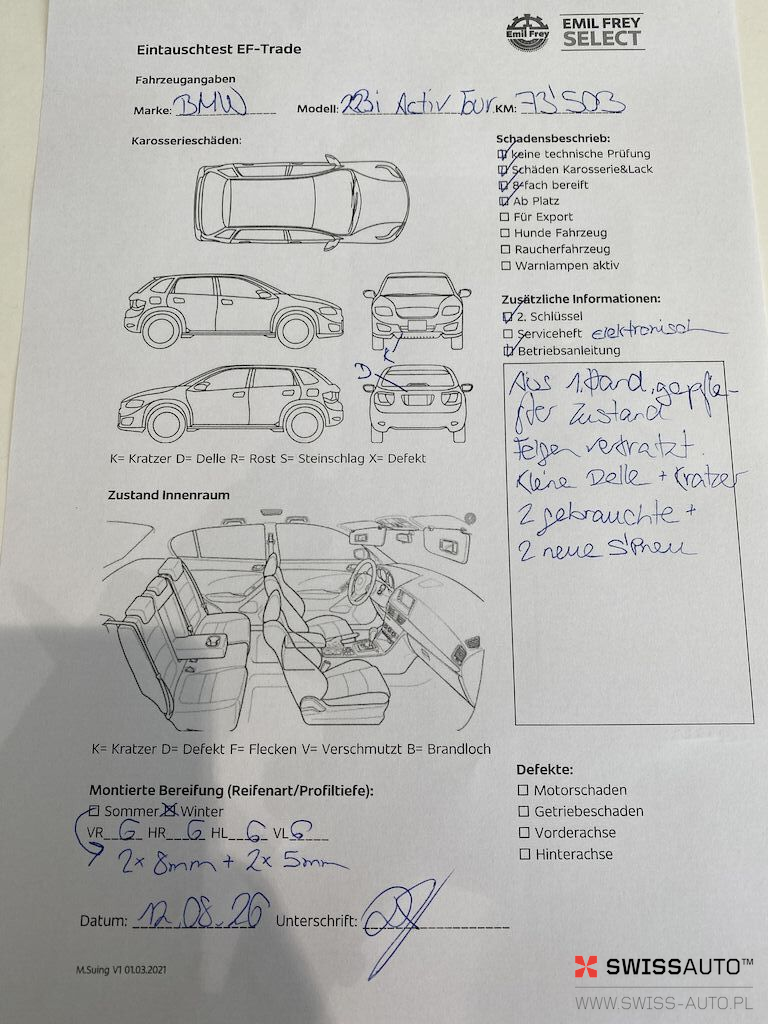 Emil Frey
EMIL FREY
SELECT
Eintauschtest EF-Trade
Fahrzeugangaben
Marke: BMW Modell: 223i Activ Tour KM: 73'503
Karosserieschäden:
Schadensbeschrieb:
keine technische Prüfung
Schäden Karosserie&Lack
8-fach bereift
Ab Platz
Für Export
Hunde Fahrzeug
Raucherfahrzeug
Warnlampen aktiv
Zusätzliche Informationen:
2. Schlüssel
Serviceheft elektronisch
Betriebsanleitung
K
D
K= Kratzer D= Delle R= Rost S= Steinschlag X= Defekt
Aus 1. Hand, gepfle-
gter Zustand
Felgen verkratzt.
Kleine Delle + Kratzer
2 gebrauchte +
2 neue S'Pneu
Zustand Innenraum
K= Kratzer D= Defekt F= Flecken V= Verschmutzt B= Brandloch
Montierte Bereifung (Reifenart/Profiltiefe):
Sommer Winter
VR 6 HR 6 HL 6 VL 6
2x 8mm + 2x 5mm
Defekte:
Motorschaden
Getriebeschaden
Vorderachse
Hinterachse
Datum: 12.08.26 Unterschrift:
M.Suing V1 01.03.2021
SWISSAUTO™
WWW.SWISS-AUTO.PL